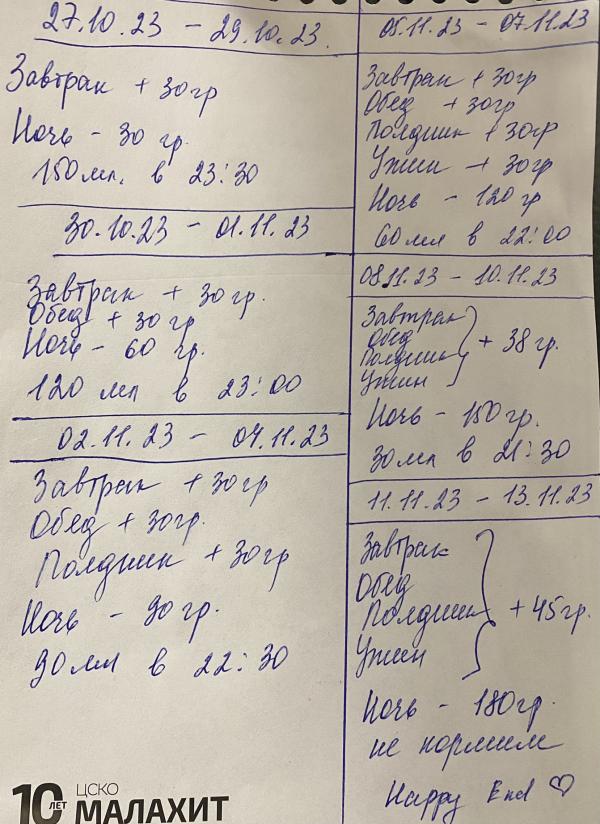 27.10.23 - 29.10.23.
Завтрак + 30гр
Ночь - 30 гр.
150 мл. в 23:30
30.10.23 - 01.11.23
Завтрак + 30 гр.
Обед + 30 гр
Ночь - 60 гр.
120 мл в 23:00
02.11.23 - 04.11.23
Завтрак + 30 гр
Обед + 30 гр.
Полдник + 30 гр
Ночь - 90 гр.
90 мл в 22:30
05.11.23 - 07.11.23
Завтрак + 30гр
Обед + 30гр
Полдник + 30гр
Ужин + 30гр
Ночь - 120 гр
60 мл в 22:00
08.11.23 - 10.11.23
Завтрак
Обед
Полдник + 38 гр.
Ужин
Ночь - 150 гр.
30 мл в 21:30
11.11.23 - 13.11.23
Завтрак
Обед
Полдник + 45 гр.
Ужин
Ночь - 180 гр.
не кормим
Happy End ♡
10 ЛЕТ ЦСКО
МАЛАХИТ